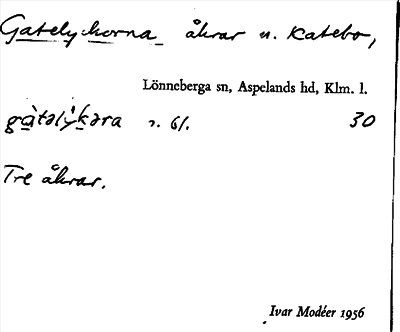 Gatelyckorna åkrar u. Katebo,
Lönneberga sn, Aspelands hd, Klm. l.
30
Tre åkrar.
Ivar Modéer 1956